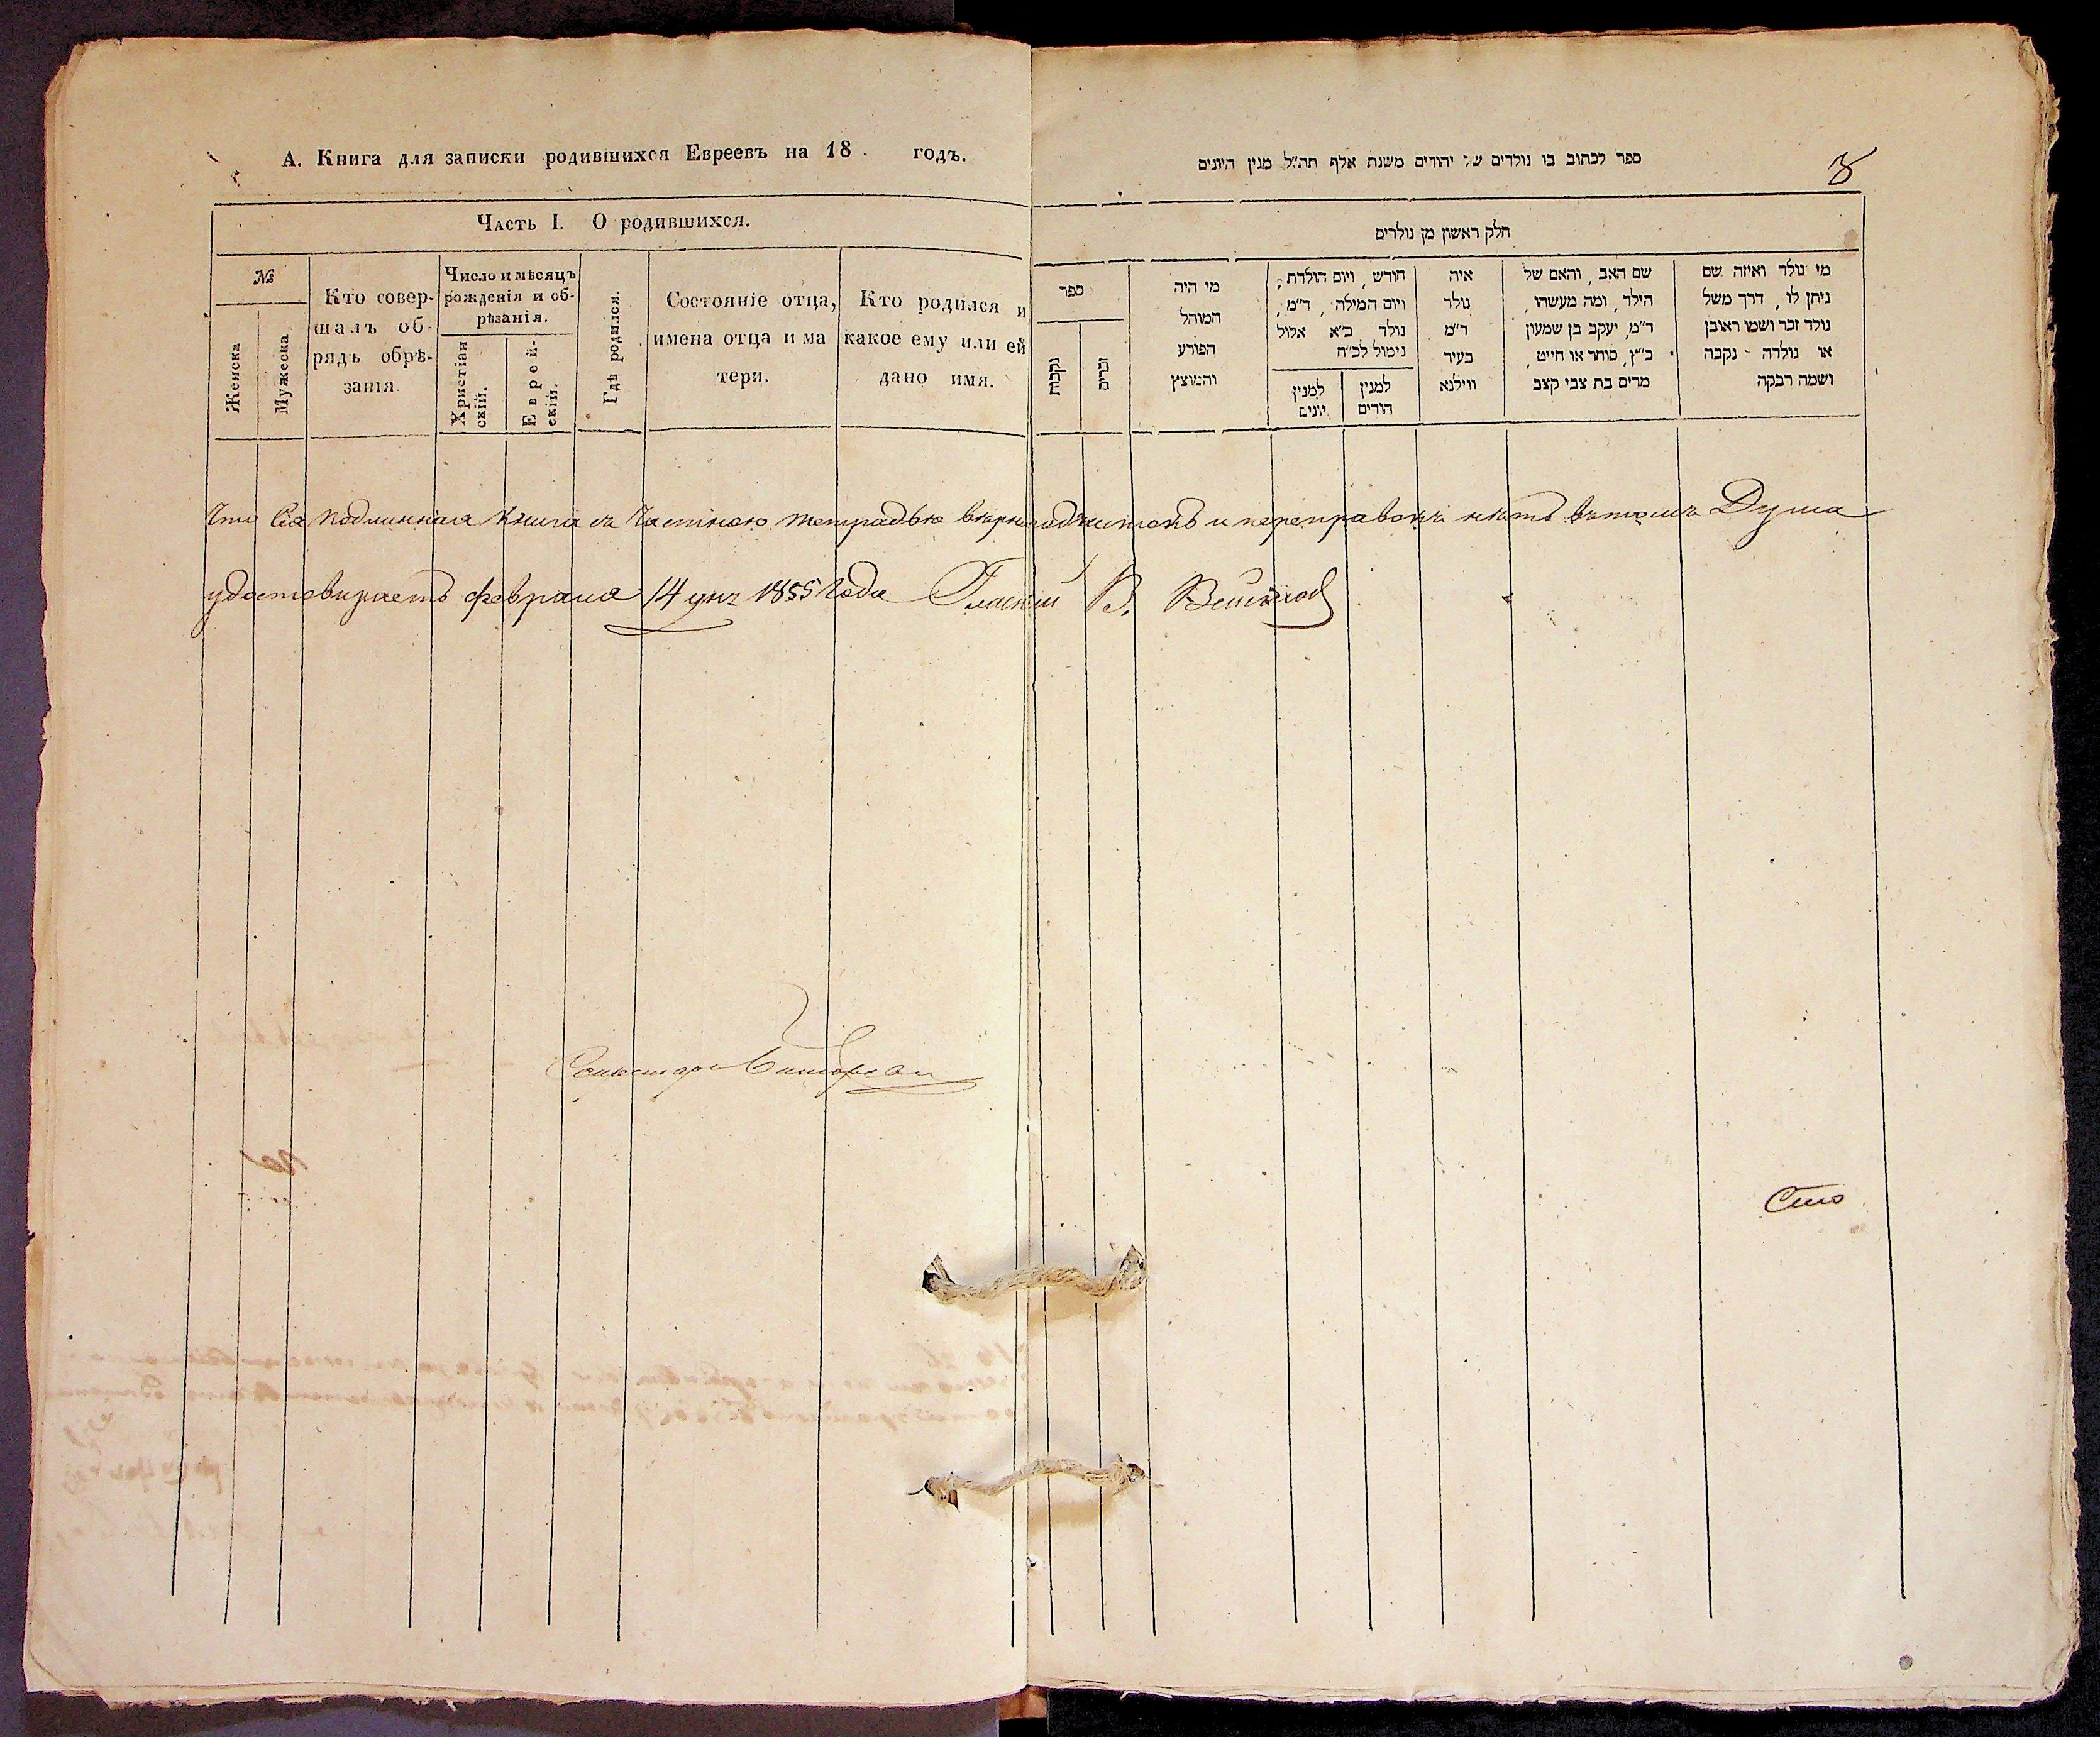 А. Книга для записки родившихся Евреевъ на 18 годъ.
Часть I. О родившихся.
№
Женска
Мужеска
Кто совер-
шалъ об-
рядъ обрѣ-
занія.
Число и мѣсяцъ
рожденія и об-
рѣзанія.
Христіан
скій.
Еврей-
скій.
Гдѣ родился.
Состояніе отца,
имена отца и ма
тери.
Кто родился и
какое ему или ей
дано имя.
ספר לכתוב בו נולדים של יהודים משנת אלף תה״ל מנין היונים
חלק ראשון מן נולדים
ספר
נקבות
זכרים
מי היה
המוהל
הפורע
והמוצץ
חודש, ויום הולדת,
ויום המילה, ד״מ,
נולד כ״א אלול
נימול לכ״ח
למנין
יונים
למנין
הודים
איה
נולד
ד״מ
בעיר
ווילנא
שם האב, והאם של
הילד, ומה מעשהו,
ד״מ, יעקב בן שמעון
כ״ץ, סוחר או חייט,
מרים בת צבי קצב
מי נולד ואיזה שם
ניתן לו, דרך משל
נולד זכר ושמו ראובן
או נולדה נקבה
ושמה רבקה
Что сія подлинная книга съ частною тетрадью вѣрна и переправокъ нѣтъ въ томъ Дума
удостовѣряетъ февраля 14 дня 1855 года Гласный В.